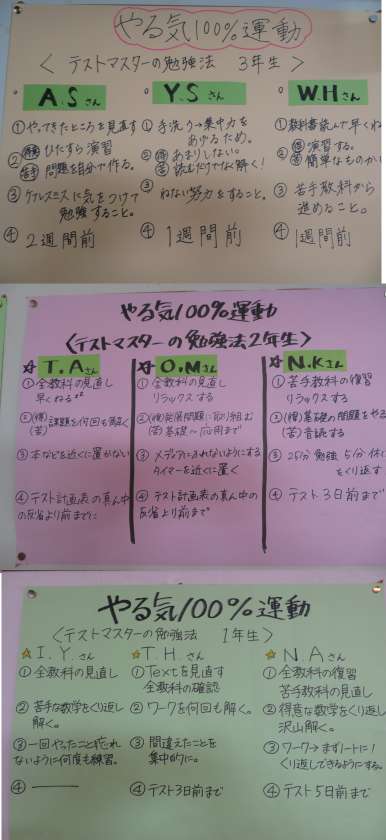 やる気100%運動
〈テストマスターの勉強法 3年生〉
A.Sさん
①やってきたところを見直す
②得意 ひたすら演習
苦手 問題を自分で作る。
③ケアレスミスに気をつけて
勉強すること。
④2週間前
Y.Sさん
①手洗う→集中力を
あげるため。
②得 あまりしない。
苦 読むだけでなく解く!
③ねない努力をすること。
④1週間前
W.Hさん
①教科書読んで早くね
②得 演習する。
苦 簡単なものから
③苦手教科から
進めること。
④1週間前
やる気100%運動
〈テストマスターの勉強法2年生〉
☆T.Aさん
①全教科の見直し
早くねる
②(得)
(苦)課題を何回も解く
③本などを近くに置かない
④テスト計画表の真ん中
の反省より前までに
☆O.Mさん
①全教科の見直し
リラックスする
②(得)発展問題に取り組む
(苦)基礎〜応用まで
③メディアにふれないようにする
タイマーを近くに置く
④テスト計画表の真ん中の
反省より前まで
☆N.Kさん
①苦手教科の復習
リラックスする
②(得)基礎の問題をやる
(苦)音読する
③25分勉強 5分休
をくり返す
④テスト3日前まで
やる気100%運動
〈テストマスターの勉強法 1年生〉
☆I.Y.さん
①全教科の見直し
②苦手な数学をくり返し
解く。
③一回やったこと忘れ
ないように何度も練習。
④――
☆T.H.さん
①Textを見直す
全教科の確認
②ワークを何回も解く。
③間違えたことを
集中的に。
④テスト3日前まで
☆N.Aさん
①全教科の復習
苦手教科の見直し
②得意な数学をくり返し
沢山解く。
③ワーク→まずノートに!
くり返しできるようにする。
④テスト5日前まで